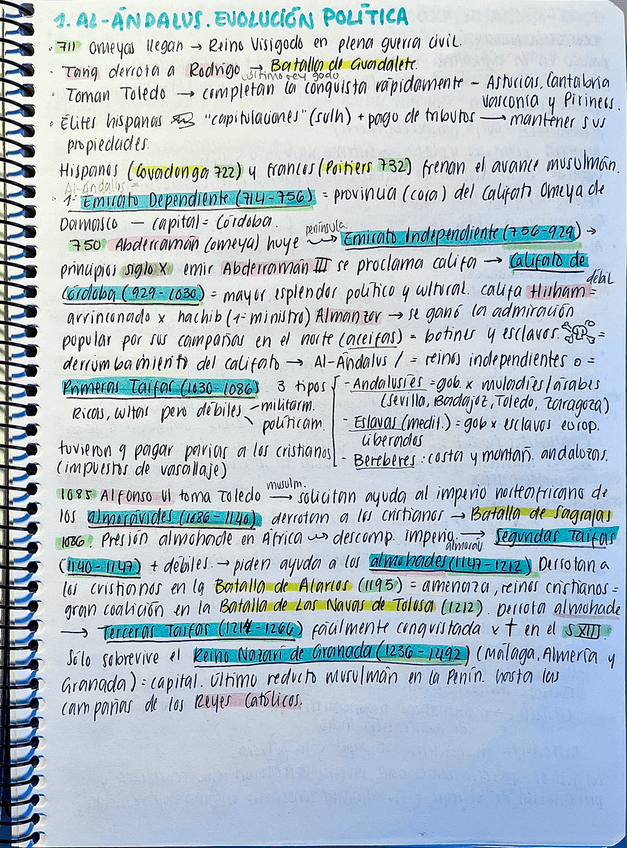 1. AL-ÁNDALUS. EVOLUCIÓN POLÍTICA
· 711 omeyas llegan → Reino Visigodo en plena guerra civil.
· Tariq derrota a Rodrigo → Batalla de Guadalete.
último rey godo
· Toman Toledo → completan la conquista rápidamente – Asturias, Cantabria
Vasconia y Pirineos.
· Élites hispanas "capitulaciones" (sulh) + pago de tributos → mantener sus
propiedades.
Hispanos (Covadonga 722) y francos (Poitiers 732) frenan el avance musulmán.
Al-Ándalus =
· 1- Emirato Dependiente (714-756) = provincia (cora) del Califato Omeya de
Damasco – capital = Córdoba.
península
750 Abderramán (omeya) huye → Emirato Independiente (756-929) →
principios siglo X emir Abderramán III se proclama califa → Califato de
débil
Córdoba (929-1030) = mayor esplendor político y cultural. califa Hisham =
arrinconado x hachib (1er ministro) Almanzor → se ganó la admiración
popular por sus campañas en el norte (aceifas) = botines y esclavos. =
derrumbamiento del califato → Al-Ándalus / = reinos independientes o =
Primeras Taifas (1030-1086) 3 tipos
- Andalusíes = gob. x muladíes/árabes
(Sevilla, Badajoz, Toledo, Zaragoza)
Ricas, cultas pero débiles
militarm.
políticam.
- Eslavas (medit.) = gob x esclavos europ.
liberados
tuvieron q pagar parias a los cristianos
(impuestos de vasallaje)
- Bereberes: costa y montañ. andaluzas.
musulm.
1085 Alfonso VI toma Toledo → solicitan ayuda al imperio norteafricano de
los almorávides (1086-1140) derrotan a los cristianos → Batalla de Sagrajas
1086. Presión almohade en África → descomp. imperio → Segundas Taifas
almoráv.
(1140-1147) + débiles. → piden ayuda a los almohades (1147-1212) Derrotan a
los cristianos en la Batalla de Alarcos (1195) = amenaza, reinos cristianos =
gran coalición en la Batalla de Las Navas de Tolosa (1212). Derrota almohade
→ Terceras Taifas (1214-1266) fácilmente conquistada x † en el S XIII.
Sólo sobrevive el Reino Nazarí de Granada (1236-1492) (Málaga, Almería y
Granada) = capital. Último reducto musulmán en la Penín. hasta las
campañas de los Reyes Católicos.